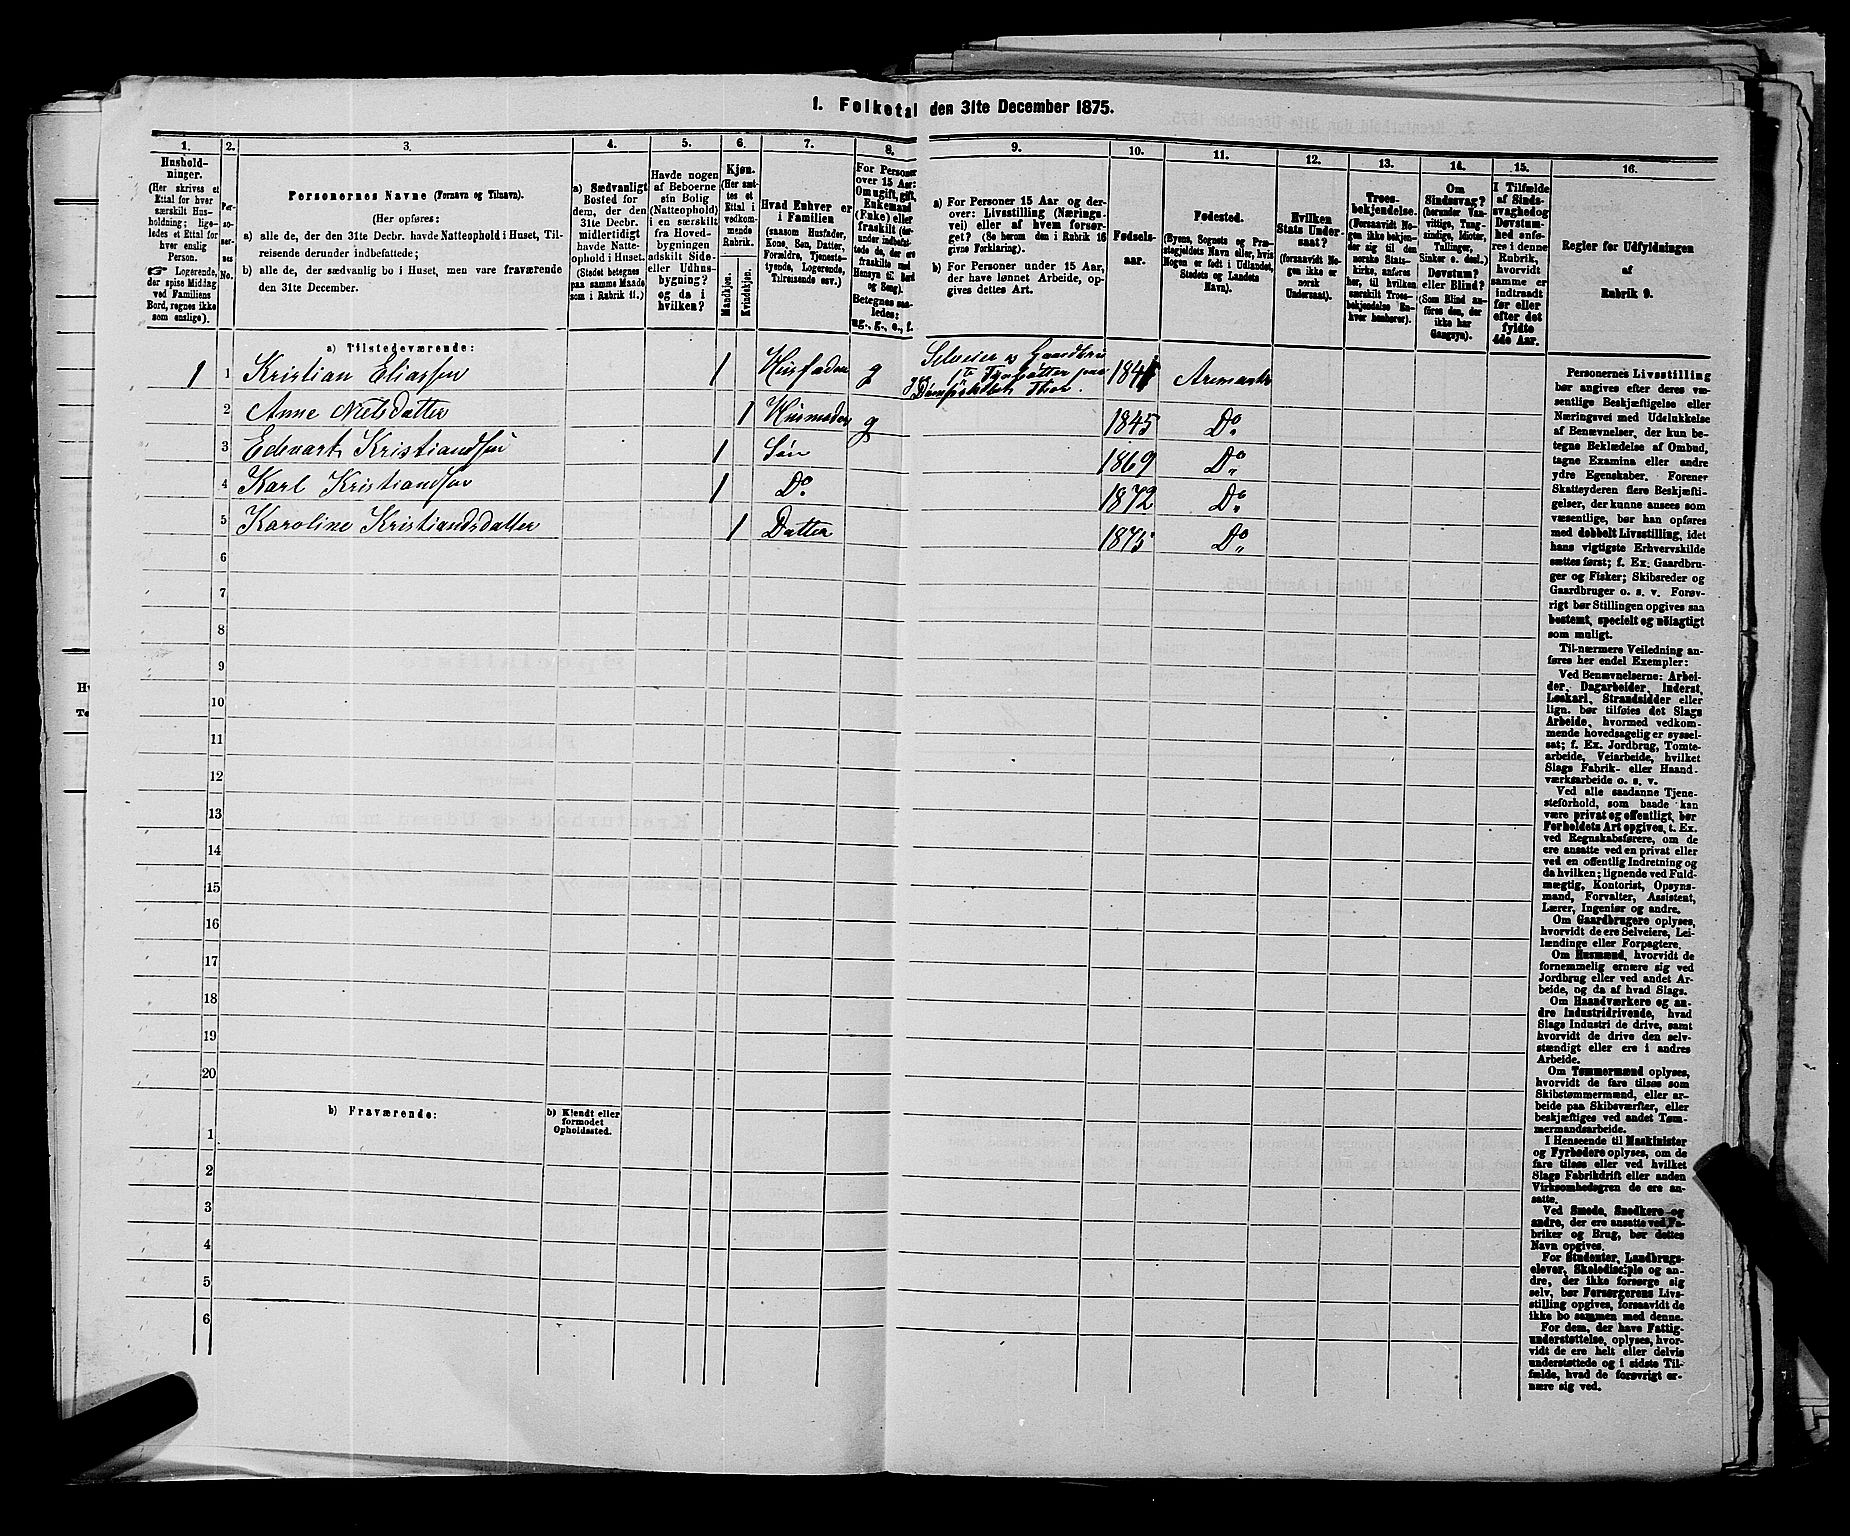 1. Folketal den 31te December 1875.
1. 2. 3. 4. 5. 6. 7. 8. 9. 10. 11. 12. 13. 14. 15. 16.
Hushold-
ninger.
(Her skrives et
Ettal for hver
særskilt Hus-
holdning; lige-
ledes et Ettal for
hver enslig
Person.
☞ Logerende,
der spise Middag
ved Familiens
Bord, regnes ikke
som enslige).
Per-
soner-
nes
No.
Personernes Navne (Fornavn og Tilnavn).
(Her opføres:
a) alle de, der den 31te Decbr. havde Natteophold i Huset, Til-
reisende derunder indbefattede;
b) alle de, der sædvanlig bo i Huset, men vare fraværende
den 31te December.
a) Sædvanligt
Bosted for
dem, der den
31te Decbr.
midlertidigt
havde Natte-
ophold i Huset.
(Stedet betegnes
paa samme Maade
som i Rubrik 11.)
Havde nogen
af Beboerne
sin Bolig
(Natteophold)
i en særskilt
fra Hoved-
bygningen
adskilt Side-
eller Udhus-
bygning?
og da i
hvilken?
Kjøn.
(Her sæt-
tes et
Ettal i
vedkom-
mende
Rubrik.
Mandkjøn.
Kvindekjøn.
Hvad Enhver er
i Familien
(saasom Husfader,
Kone, Søn, Datter,
Forældre, Tjeneste-
tyende, Logerende,
Tilreisende osv.)
For Personer
over 15 Aar:
Om ugift, gift,
Enkemand
(Enke) eller
fraskilt (der-
under indbefat-
tede de, der ere
fraskilte med
Hensyn til Bord
og Seng).
Betegnes saa-
ledes:
ug., g., e., f.
a) For Personer 15 Aar og der-
over: Livsstilling (Nærings-
vei) eller af hvem forsør-
get? (Se herom den i Rubrik 16
givne Forklaring).
b) For Personer under 15 Aar,
der have lønnet Arbeide, op-
gives dettes Art.
Fødsels-
aar.
Fødested.
(Byens, Sognets og Præ-
stegjeldets Navn eller, hvis
Nogen er født i Udlandet,
Stedets og Landets
Navn).
Hvilken
Stats Under-
saat?
(forsaavidt No-
gen ikke er
norsk
Undersaat).
Troes-
bekjendelse.
(Forsaavidt No-
gen ikke bekjen-
der sig til den
norske Stats-
kirke, anføres
her, til hvilken
særskilt Troes-
bekjendelse En-
hver henhører).
Om
Sindssvag?
(herunder Van-
vittige, Tung-
sindige, Idioter,
Tullinger,
Sinker o. desl.)
Døvstum?
eller Blind?
(Som Blind an-
føres den, der
ikke har
Gangsyn).
I Tilfælde
af Sinds-
svaghed og
Døvstum-
hed anfø-
res i denne
Rubrik,
hvorvidt
samme er
indtraadt
før eller
efter det
fyldte
4de Aar.
Regler for Udfyldningen
af
Rubrik 9.
a) Tilstedeværende:
1 1 Kristian Eliassen 1 Husfader g Selveier og Gaardbru 184 Aremark
2 Anne Nielsdatter 1 Husmoder g 1845 Do.
3 Edevart Kristiandsen 1 Søn 1869 Do
4 Karl Kristiandsen 1 Do. 1872 Do
5 Karoline Kristiandsdatter 1 Datter 1875 Do
6
7
8
9
10
11
12
13
14
15
16
17
18
19
20
b) Fraværende: b) Kjendt eller
formodet
Opholdssted.
1
2
3
4
5
6
Personernes Livsstilling
bør angives efter deres væ-
sentlige Beskjæftigelse eller
Næringsvei med Udelukkelse
af Benævnelser, der kun be-
tegne Beklædelse af Ombud,
tagne Examina eller andre
ydre Egenskaber. Forener
Skatteyderen flere Beskjæfti-
gelser, der kunne ansees som
væsentlige, bør han opføres
med dobbelt Livsstilling, idet
hans vigtigste Erhvervskilde
sættes først; f. Ex. Gaardbru-
ger og Fisker; Skibsreder og
Gaardbruger o. s. v. Forøv-
rigt bør Stillingen opgives saa
bestemt, specielt og nøiagtigt
som muligt.
Til nærmere Veiledning an-
føres her endel Exempler:
Ved Benævnelserne: Arbei-
der, Dagarbeider, Inderst,
Løskarl, Strandsidder eller
lign. bør tilføies det Slags
Arbeide, hvormed vedkom-
mende hovedsagelig er syssel-
sat; f. Ex. Jordbrug, Tomte-
arbeide, Veiarbeide, hvilket
Slags Fabrik- eller Haand-
værksarbeide o. s. v.
Ved alle saadanne Tjene-
steforhold, som baade kan
være privat og offentligt, bør
Forholdets Art opgives, t. Ex.
ved Regnskabsførere, om de
ere ansatte ved en privat eller
ved en offentlig Indretning og
da hvilken; lignende ved Fuld-
mægtig, Kontorist, Opsyns-
mand, Forvalter, Assistent,
Lærer, Ingeniør og andre.
Om Gaardbrugere oplyses,
hvorvidt de ere Selveiere, Lei-
lændinge eller Forpagtere.
Om Husmænd, hvorvidt de
fornemmelig ernære sig ved
Jordbrug eller ved andet Ar-
beide, og da af hvad Slags.
Om Haandværkere og an-
dre Industridrivende, hvad
Slags Industri de drive, samt
hvorvidt de drive den selv-
stændigt eller ere i andres
Arbeide.
Om Tømmermænd oplyses,
hvorvidt de fare tilsøs som
Skibstømmermænd, eller ar-
beide paa Skibsværfter, eller
beskjæftiges ved andet Tøm-
mermandsarbeide.
I Henseende til Maskinister
og Fyrbødere oplyses, om de
fare tilsøs eller ved hvilket
Slags Fabrikdrift eller anden
Virksomhedsgren de ere an-
satte.
Ved Smede, Snedkere og
andre, der ere ansatte ved Fa-
briker og Brug, bør dettes
Navn opgives.
For Studenter, Landbrugs-
elever, Skoledisciple og an-
dre, der ikke forsørge sig
selv, bør Forsørgerens Livs-
stilling opgives, forsaavidt de
ikke bo sammen med denne.
For dem, der have Fattig-
understøttelse, oplyses, hvor-
vidt de ere helt eller delvis
understøttede og i sidste Til-
fælde, hvad de forøvrigt er-
nære sig ved.